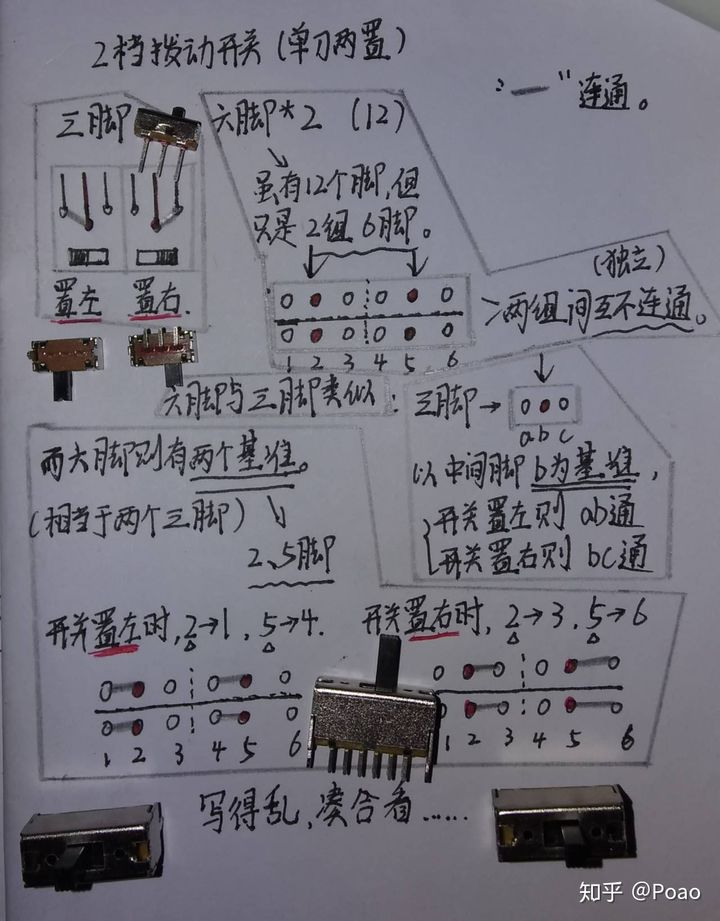 2档拨动开关(单刀两置)
"—"连通。
三脚
六脚*2 (12)
虽有12个脚,但
只是2组6脚。
置左 置右.
(独立)
>两组间互不连通。
1 2 3 4 5 6
六脚与三脚类似:
三脚→
a b c
以中间脚b为基准,
开关置左则 ab通
开关置右则 bc通
而六脚则有两个基准。
(相当于两个三脚)
2、5脚
开关置左时,2→1, 5→4.
开关置右时, 2→3, 5→6
1 2 3 4 5 6
1 2 3 4 5 6
写得乱,凑合看......
知乎 @Poao